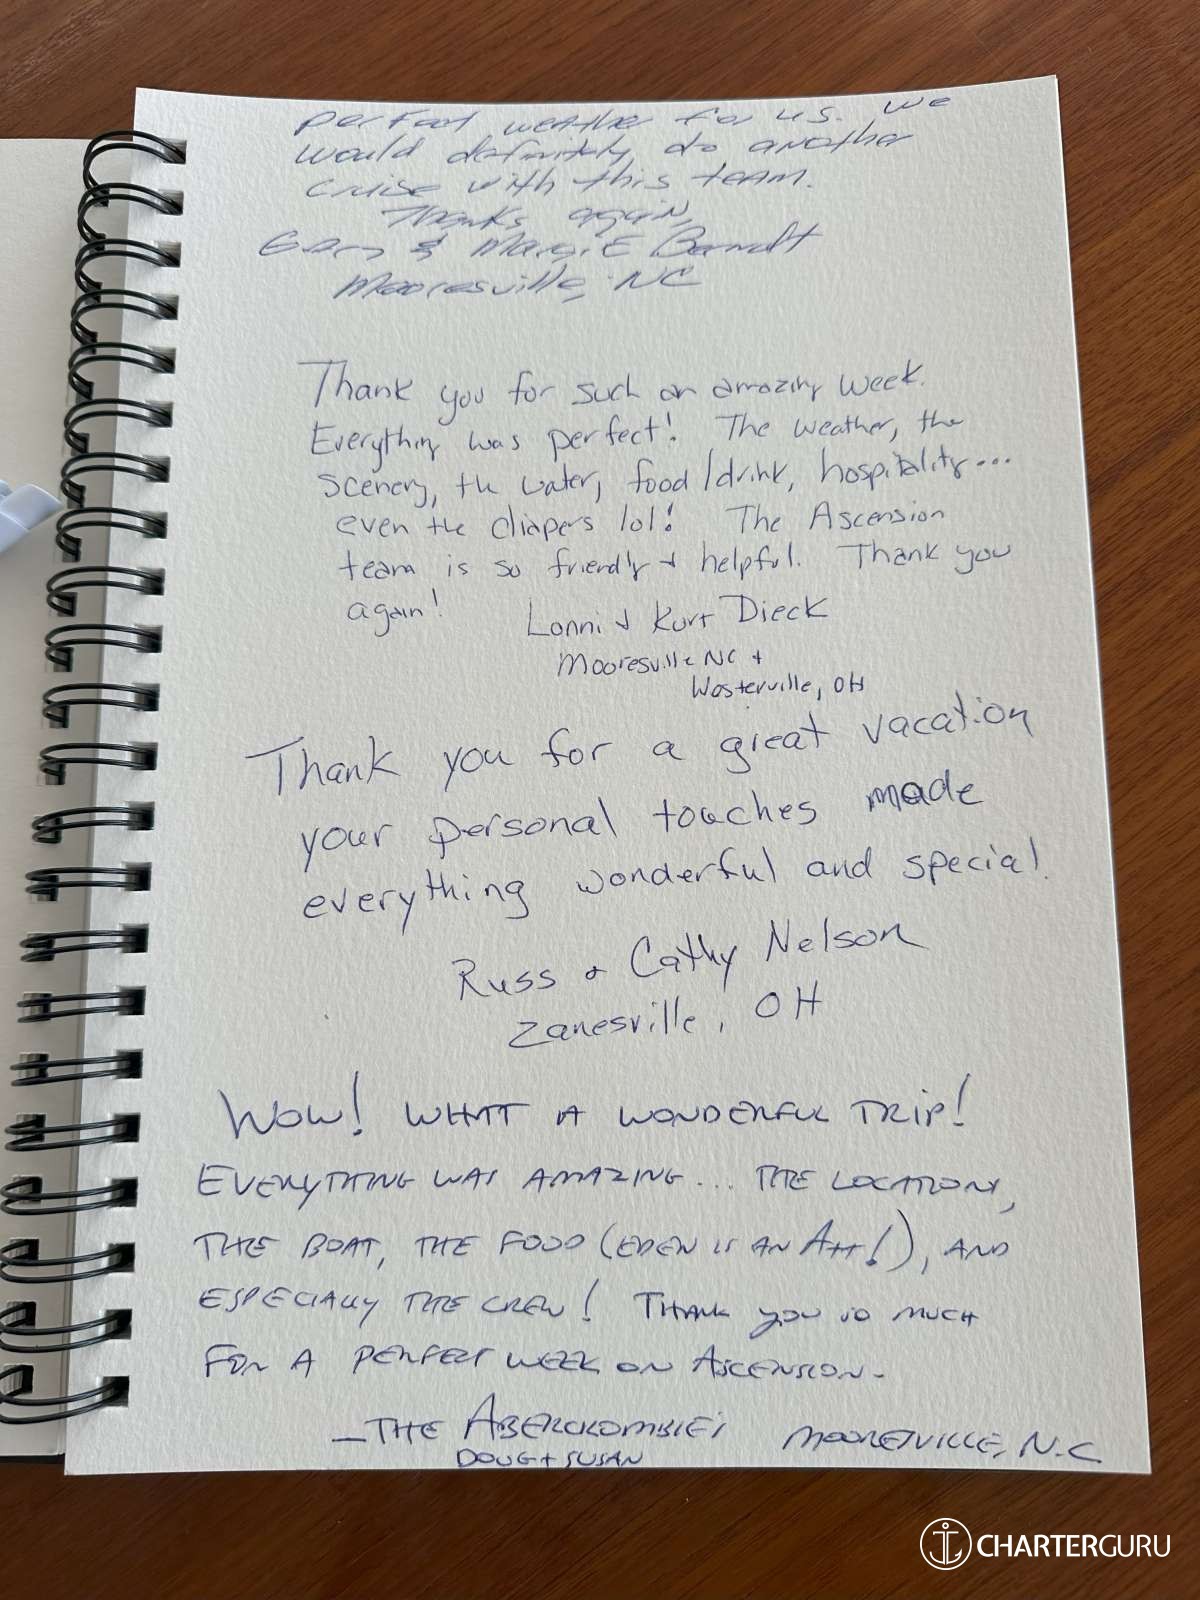 perfect weather for us. We
would definitely do another
cruise with this team.
Thanks again,
& Margie Barndt
Mooresville, NC
Thank you for such an amazing week.
Everything was perfect! The weather, the
scenery, the water, food/drink, hospitality...
even the diapers lol! The Ascension
team is so friendly + helpful. Thank you
again!
Lonni + Kurt Dieck
Mooresville NC +
Westerville, OH
Thank you for a great vacation
your personal touches made
everything wonderful and special.
Russ & Cathy Nelson
Zanesville, OH
WOW! WHAT A WONDERFUL TRIP!
EVERYTHING WAS AMAZING... THE LOCATIONS,
THE BOAT, THE FOOD (EDEN IS AN A++!), AND
ESPECIALLY THE CREW! THANK YOU SO MUCH
FOR A PERFECT WEEK ON ASCENSION.
—THE ABERCROMBIES MOORESVILLE, N.C
DOUG + SUSAN
CHARTERGURU